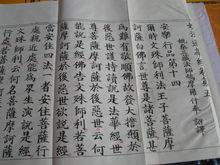 姚秦三藏法師鳩摩羅什奉 詔譯
安樂行品第十四
爾時文殊師利法王子菩薩摩
訶薩白佛言世尊是諸菩薩甚
為難有敬順佛故發大誓願於
後惡世護持讀說是法華經世
尊菩薩摩訶薩於後惡世云何
能說是經佛告文殊師利若菩
薩摩訶薩於後惡世欲說是經
當安住四法一者安住菩薩行
處親近處能為眾生演說是經
文殊師利云何名菩薩摩訶薩
行處若菩薩摩訶薩